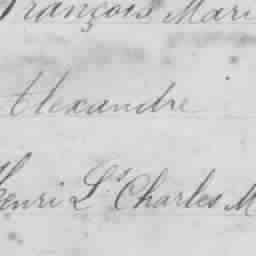 François Mari
Alexandre
Henri Ls Charles M